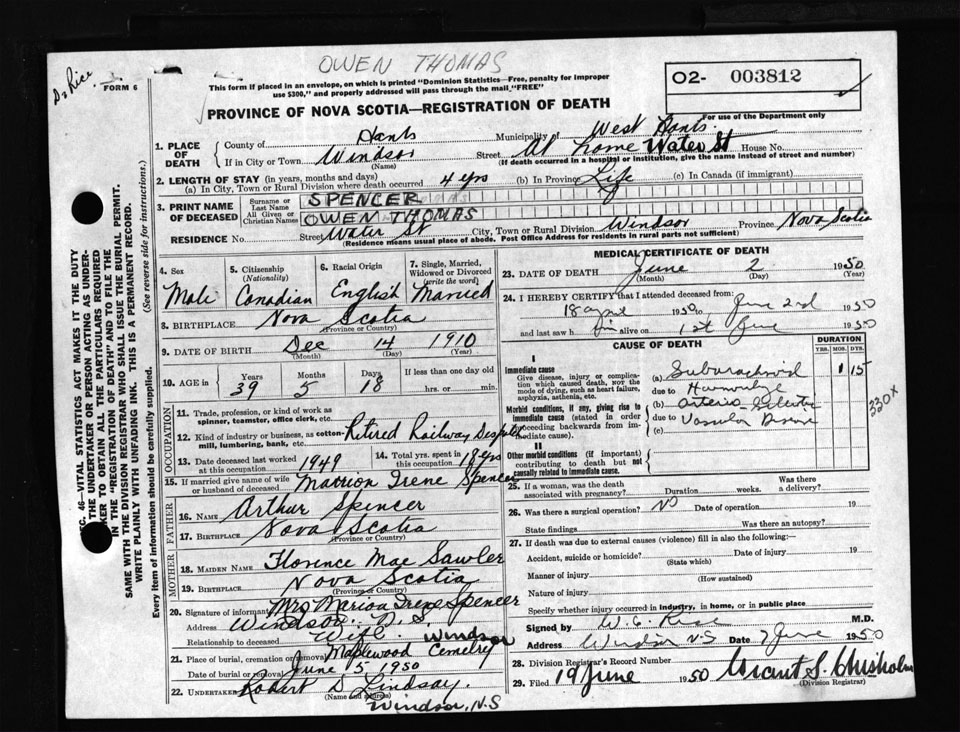 OWEN THOMAS
Dr Rice
FORM 6
This form if placed in an envelope, on which is printed "Dominion Statistics—Free, penalty for improper
use $300," and properly addressed will pass through the mail "FREE"
O2- 003812
For use of the Department only
PROVINCE OF NOVA SCOTIA—REGISTRATION OF DEATH
1. PLACE OF DEATH
County of Hants Municipality of West Hants
If in City or Town Windsor Street At home Water St House No.
(Name) (If death occurred in a hospital or institution, give the name instead of street and number)
2. LENGTH OF STAY (in years, months and days)
(a) In City, Town or Rural Division where death occurred 4 yrs (b) In Province Life (c) In Canada (if immigrant)
3. PRINT NAME OF DECEASED
Surname or Last Name SPENCER
All Given or Christian Names OWEN THOMAS
RESIDENCE No. Street Water St City, Town or Rural Division Windsor Province Nova Scotia
(Residence means usual place of abode. Post Office Address for residents in rural parts not sufficient)
4. Sex Male
5. Citizenship (Nationality) Canadian
6. Racial Origin English
7. Single, Married, Widowed or Divorced (write the word) Married
8. BIRTHPLACE Nova Scotia
(Province or Country)
9. DATE OF BIRTH Dec 14 1910
(Month) (Day) (Year)
10. AGE in Years 39 Months 5 Days 18 If less than one day old
hrs. or min.
OCCUPATION
11. Trade, profession, or kind of work as
spinner, teamster, office clerk, etc.
12. Kind of industry or business, as cotton-
mill, lumbering, bank, etc. Retired Railway
13. Date deceased last worked at this occupation 1949
14. Total yrs. spent in this occupation 18 yrs
15. If married give name of wife or husband of deceased Marrion Irene Spencer
FATHER
16. NAME Arthur Spencer
17. BIRTHPLACE Nova Scotia
(Province or Country)
MOTHER
18. MAIDEN NAME Florence Mae Sawler
19. BIRTHPLACE Nova Scotia
(Province or Country)
20. Signature of informant Mrs Marion Irene Spencer
Address Windsor, N.S.
Relationship to deceased Wife
21. Place of burial, cremation or removal Maplewood Cemetery Windsor
Date of burial or removal June 5 1950
22. Undertaker Robert D Lindsay.
(Name and address)
Windsor, N.S
MEDICAL CERTIFICATE OF DEATH
23. DATE OF DEATH June 2 1950
(Month) (Day) (Year)
24. I HEREBY CERTIFY that I attended deceased from:
18 april 1950 to June 2nd 1950
and last saw h im alive on 1st June 1950
CAUSE OF DEATH
DURATION
YRS. MOS. DYS.
I
Immediate cause
Give disease, injury or complication which caused death, NOT the mode of dying, such as heart failure, asphyxia, asthenia, etc.
(a) Subarachnoid 1 15
due to Hemorrhage
Morbid conditions, if any, giving rise to immediate cause (stated in order proceeding backwards from immediate cause).
(b) Arterio-Sclerotic
due to Vascular Disease
(c)
330X
II
Other morbid conditions (if important) contributing to death but not causally related to immediate cause.
25. If a woman, was the death associated with pregnancy? Duration weeks. Was there a delivery?
26. Was there a surgical operation? No Date of operation 19
State findings Was there an autopsy?
27. If death was due to external causes (violence) fill in also the following:
Accident, suicide or homicide? Date of injury 19
(State which)
Manner of injury
(How sustained)
Nature of injury
Specify whether injury occurred in industry, in home, or in public place
Signed by W. G. Rice M.D.
Address Windsor N.S Date 2 June 1950
28. Division Registrar's Record Number
29. Filed 19 June 1950 Grant S. Chisholm
(Division Registrar)
SEC. 46—VITAL STATISTICS ACT MAKES IT THE DUTY
THE UNDERTAKER OR PERSON ACTING AS UNDER-
TAKER TO OBTAIN ALL THE PARTICULARS REQUIRED
IN THE "REGISTRATION OF DEATH" AND TO FILE THE
SAME WITH THE DIVISION REGISTRAR WHO SHALL ISSUE THE BURIAL PERMIT.
WRITE PLAINLY WITH UNFADING INK. THIS IS A PERMANENT RECORD.
Every item of information should be carefully supplied. (See reverse side for instructions.)